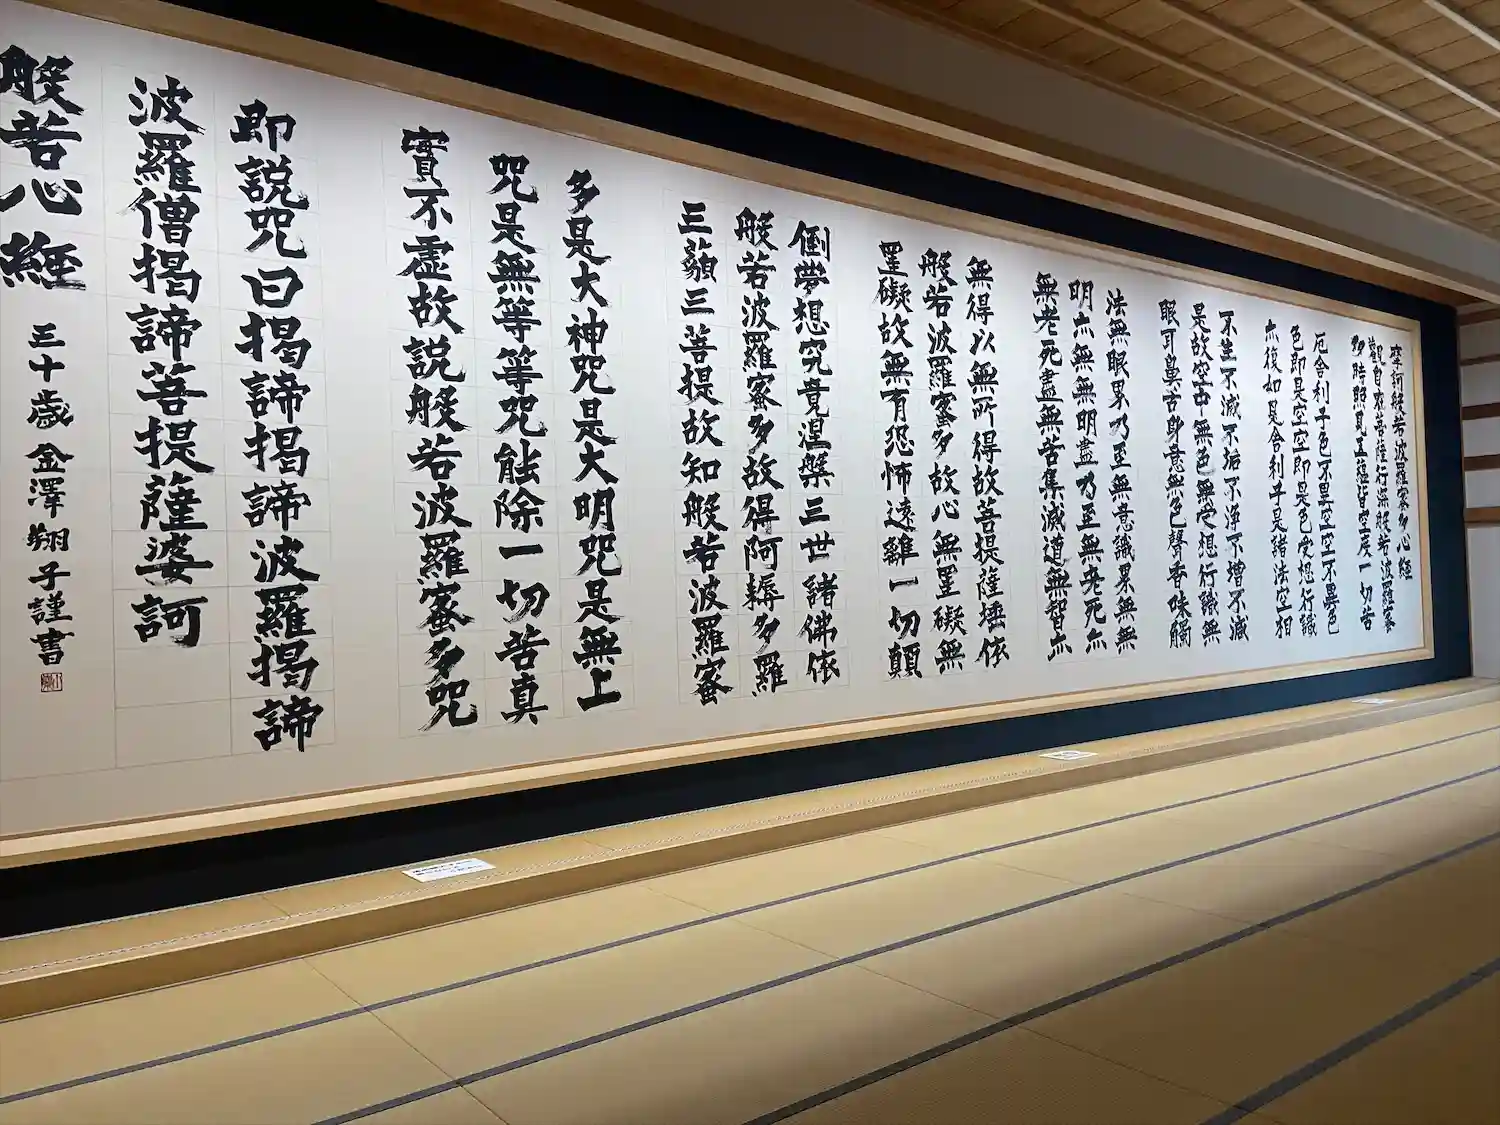 摩訶般若波羅蜜多心經
觀自在菩薩行深般若波羅蜜
多時照見五蘊皆空度一切苦
厄舍利子色不異空空不異色
色即是空空即是色受想行識
亦復如是舍利子是諸法空相
不生不滅不垢不淨不増不減
是故空中無色無受想行識無
眼耳鼻舌身意無色聲香味觸
法無眼界乃至無意識界無無
明亦無無明盡乃至無老死亦
無老死盡無苦集滅道無智亦
無得以無所得故菩提薩埵依
般若波羅蜜多故心無罣礙無
罣礙故無有恐怖遠離一切顛
倒夢想究竟涅槃三世諸佛依
般若波羅蜜多故得阿耨多羅
三藐三菩提故知般若波羅蜜
多是大神咒是大明咒是無上
咒是無等等咒能除一切苦真
實不虛故説般若波羅蜜多咒
即説咒曰揭諦揭諦波羅揭諦
波羅僧揭諦菩提薩婆訶
般若心經
三十歳 金澤翔子謹書